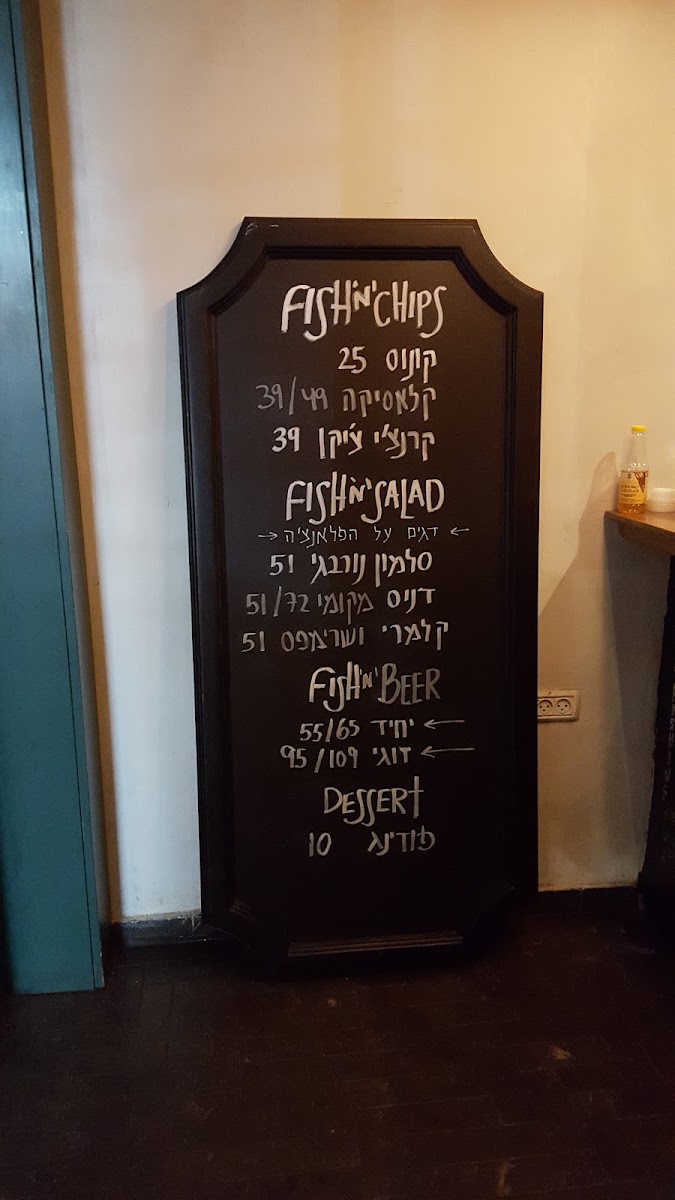 FISH'N'CHIPS
קונוס 25
קלאסיקה 39/49
קרנצ'י צ'יקן 39
FISH'N'SALAD
← דגים על הפלאנצ'ה →
סלמון נורבגי 51
דניס מקומי 51/72
קלמרי ושרימפס 51
FISH'N'BEER
← יחיד 55/65
← זוגי 95/109
DESSERT
פודינג 10